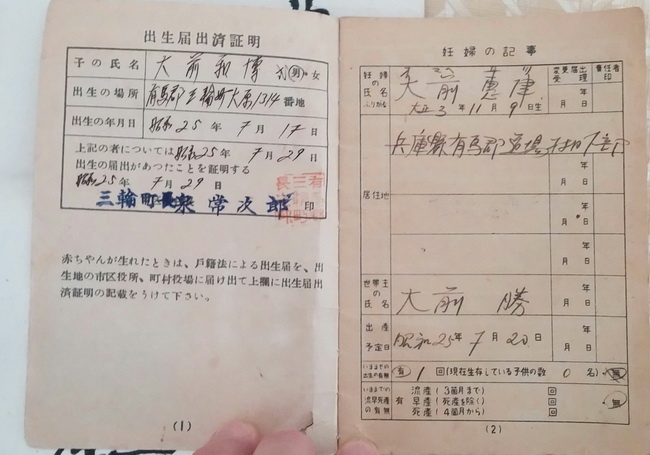 出生届出済証明
子の氏名 大前和博 男・女
出生の場所 有馬郡三輪町大原1314番地
出生の年月日 昭和25年7月17日
上記の者については昭和25年7月29日
出生の届出があつたことを証明する
昭和25年7月29日
三輪町長 常次郎 印
赤ちやんが生れたときは、戸籍法による出生届を、出
生地の市区役所、町村役場に届け出て上欄に出生届出
済証明の記載をうけて下さい。
(1)
妊婦の記事
妊婦の氏名 ふりがな 大前
大正3年11月9日生
変更届出受理 年月日
責任者印
居住地 兵庫縣有馬郡道場村
年月日
年月日
年月日
世帯主の氏名 大前勝
年月日
出産予定日 昭和25年7月20日
年月日
いままでの出生の有無 有 1回(現在生存している子供の数 0名) 無
いままでの流早死産の有無 有 流産(3箇月まで) 回 無
早産(死産を除く) 回
死産(4箇月から) 回
(2)